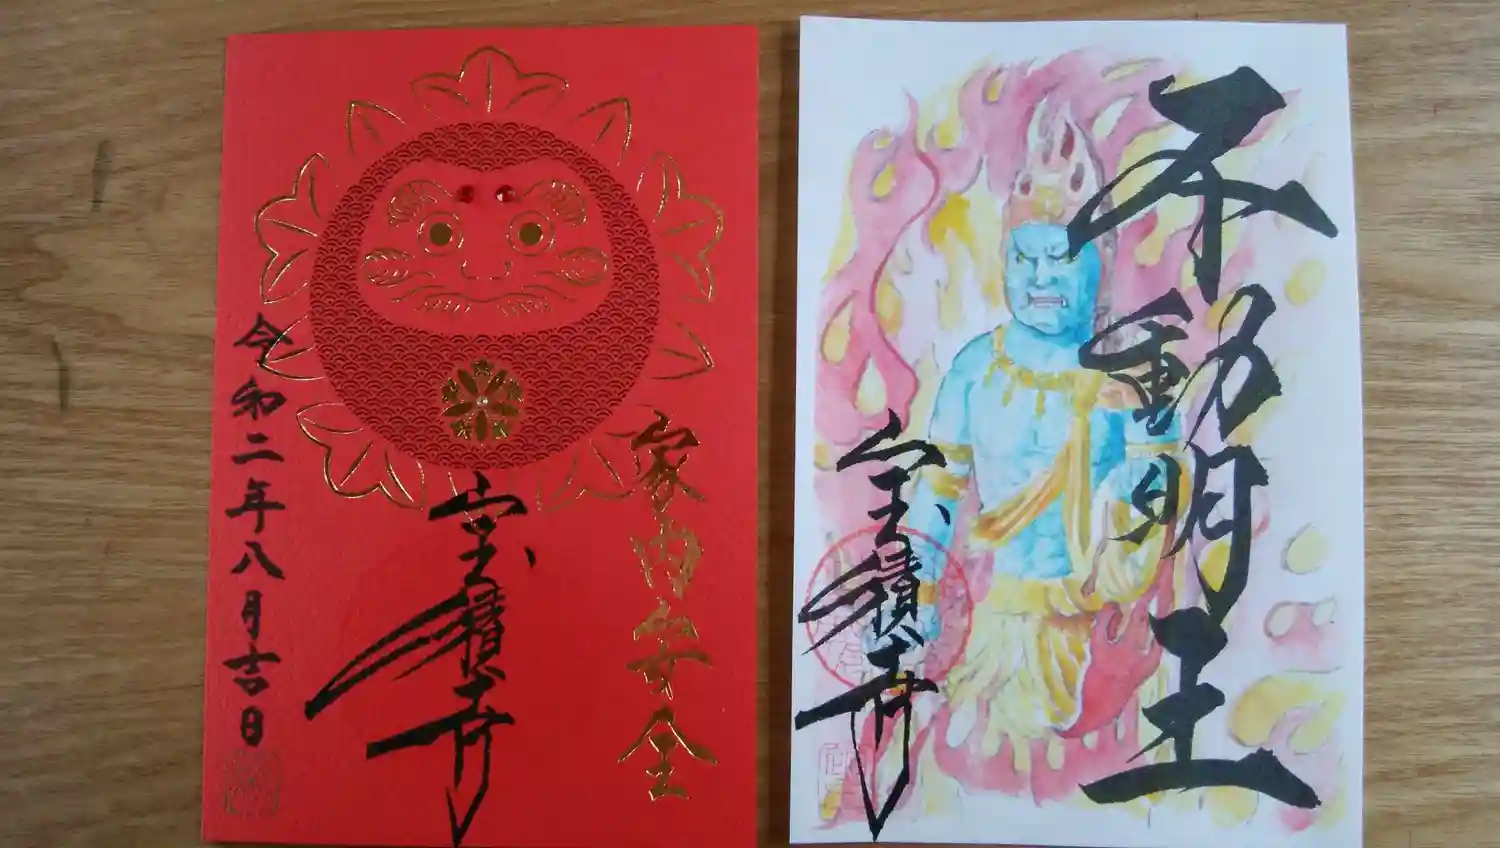 家内安全
宝積寺
令和二年八月吉日
不動明王
宝積寺